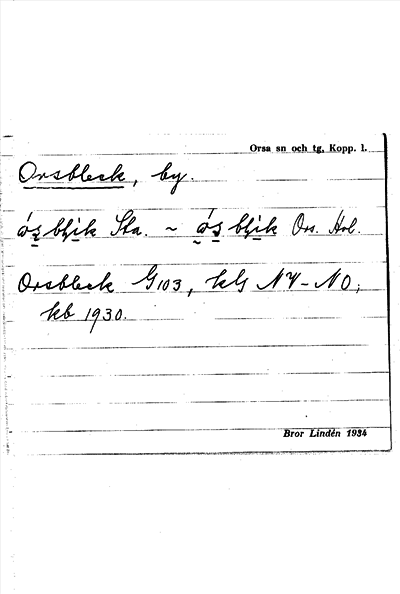 Orsa sn och tg, Kopp. l.
Orsbleck, by.
ó̤s̲ bḷi̲k Sta. ~ ó̤s̲ bḷi̲k Ors. Hol.
Orsbleck G103, kbg NV-NO;
kb 1930.
Bror Lindén 1934